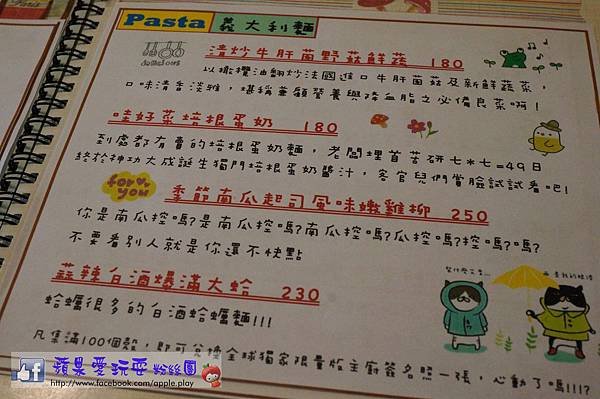 Pasta 義大利麵
清炒牛肝菌野菇鮮蔬 180
以橄欖油翻炒法國進口牛肝菌菇及新鮮蔬菜，
口味清香淡雅，堪稱兼顧營養與降血脂之必備良菜啊！
哇好菜培根蛋奶 180
到處都有賣的培根蛋奶麵，老闆埋首苦研七*七=49日
終於神功大成誕生獨門培根蛋奶醬汁，客官兒們賞臉試試看吧！
for you
季節南瓜起司風味嫩雞柳 250
你是南瓜控嗎?是南瓜控嗎?南瓜控嗎?瓜控嗎?控嗎?嗎?
不要看別人就是你還不快點
蒜辣白酒爆滿大蛤 230
蛤蠣很多的白酒蛤蠣麵!!!
凡集滿100個殼，即可兌換全球獨家限量版主廚簽名照一張，心動了嗎!!!?
蘋果愛玩耍 粉絲團
www.facebook.com/apple.play